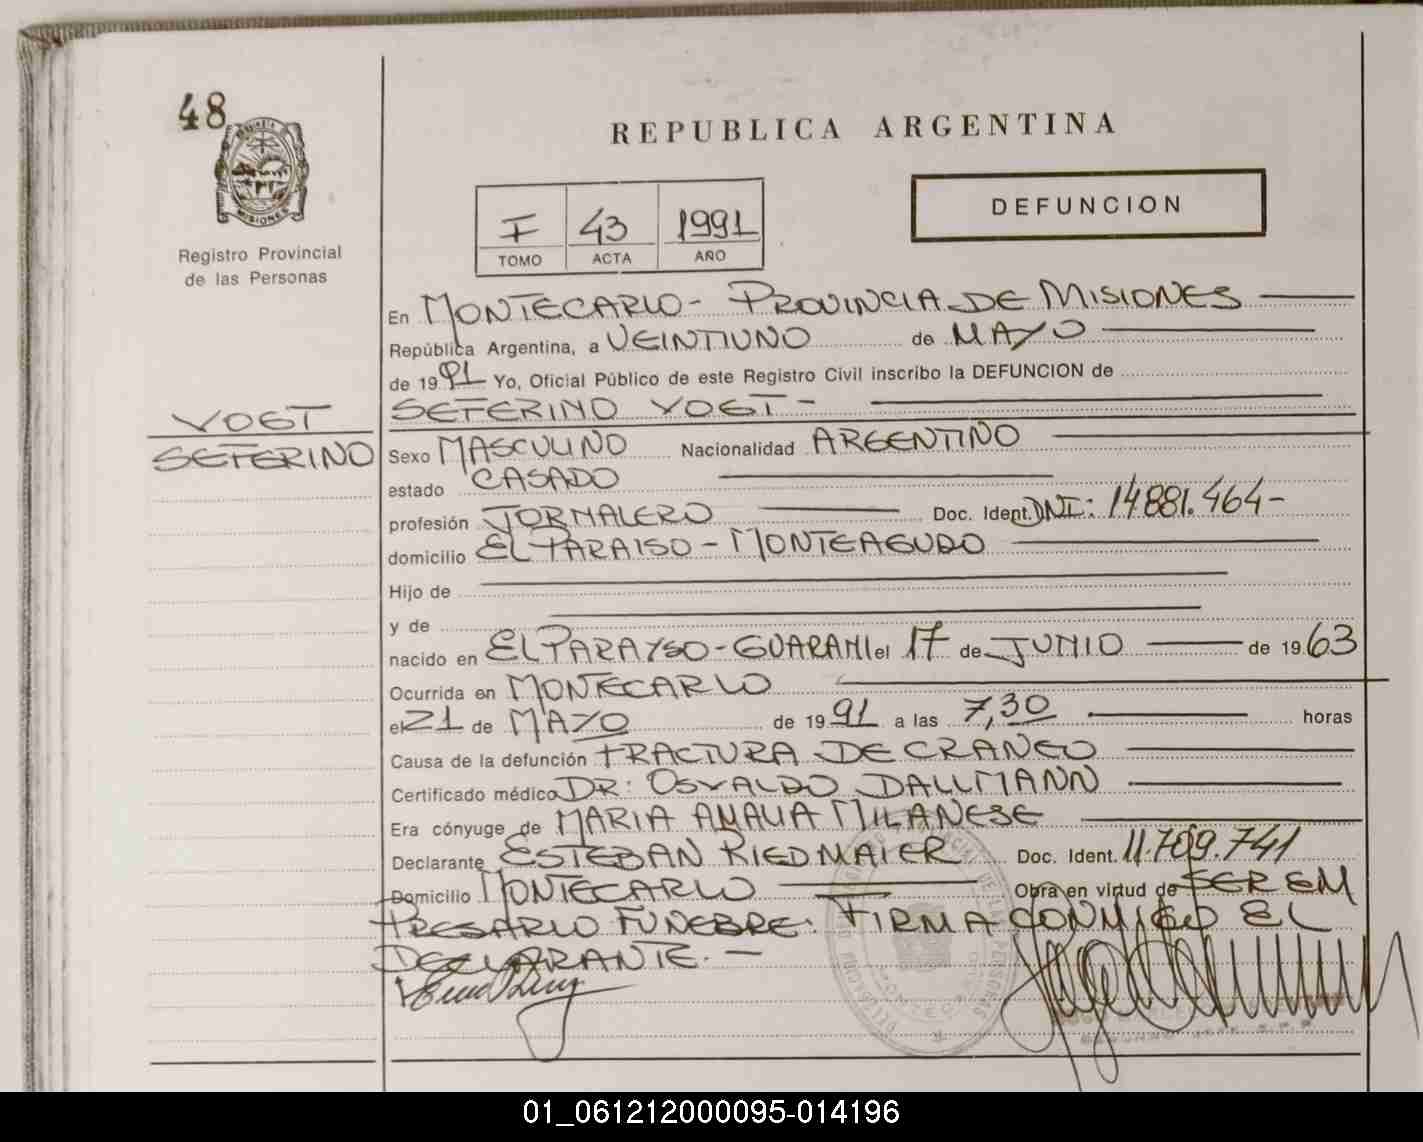 48
MISIONES
Registro Provincial
de las Personas
REPUBLICA ARGENTINA
I 43 1991
TOMO ACTA AÑO
DEFUNCION
En MONTECARLO - PROVINCIA DE MISIONES
República Argentina, a VEINTIUNO de MAYO
de 1991 Yo, Oficial Público de este Registro Civil inscribo la DEFUNCION de
SEFERINO VOGT -
VOGT
SEFERINO
Sexo MASCULINO Nacionalidad ARGENTINO
estado CASADO
profesión JORNALERO Doc. Ident. DNI: 14881.464-
domicilio EL PARAISO - MONTEAGUDO
Hijo de
y de
nacido en EL PARAYSO - GUARANI el 17 de JUNIO de 1963
Ocurrida en MONTECARLO
el 21 de MAYO de 1991 a las 7,30 horas
Causa de la defunción FRACTURA DE CRANEO
Certificado médico DR: OSVALDO DALLMANN
Era cónyuge de MARIA AMALIA MILANESE
Declarante ESTEBAN RIEDMAIER Doc. Ident. 11.709.741
Domicilio MONTECARLO Obra en virtud de SER EM
PRESARIO FUNEBRE: FIRMA CONMIGO EL
DECLARANTE. -
01_061212000095-014196